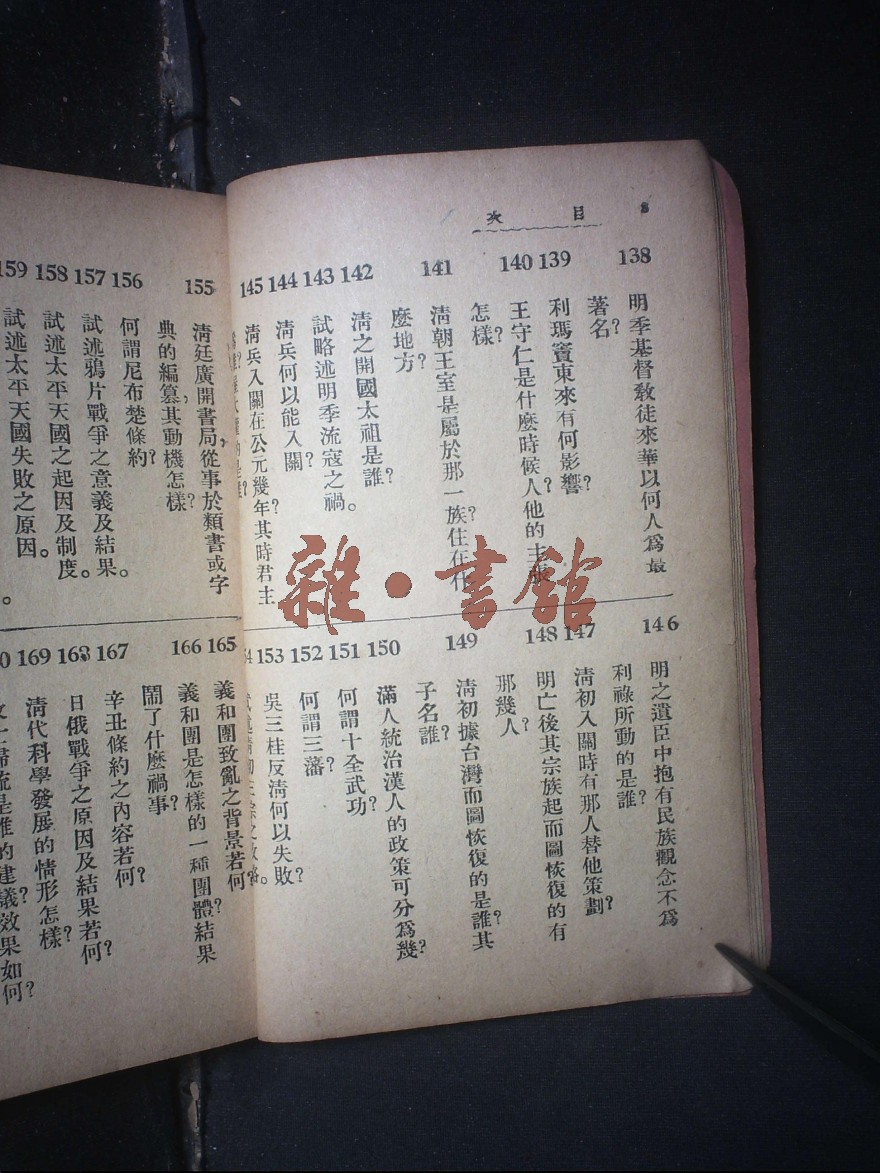 目次 8
138 明季基督敎徒來華以何人爲最
著名?
139 利瑪竇東來有何影響?
140 王守仁是什麼時候人?他的主張
怎樣?
141 清朝王室是屬於那一族?住在什
麼地方?
142 淸之開國太祖是誰?
143 試略述明季流寇之禍。
144 淸兵何以能入關?
145 淸兵入關在公元幾年?其時君主
146 明之遺臣中抱有民族觀念不爲
利祿所動的是誰?
147 淸初入關時有那人替他策劃?
148 明亡後其宗族起而圖恢復的有
那幾人?
149 淸初據台灣而圖恢復的是誰?其
子名誰?
150 滿人統治漢人的政策可分爲幾?
151 何謂十全武功?
152 何謂三藩?
153 吳三桂反淸何以失敗?
155 淸廷廣開書局,從事於類書或字
典的編纂,其動機怎樣?
156 何謂尼布楚條約?
157 試述鴉片戰爭之意義及結果。
158 試述太平天國之起因及制度。
159 試述太平天國失敗之原因。
165 義和團致亂之背景若何?
166 義和團是怎樣的一種團體?結果
鬧了什麼禍事?
167 辛丑條約之內容若何?
168 日俄戰爭之原因及結果若何?
169 淸代科學發展的情形怎樣?
是誰的建議?效果如何?
雜·書館